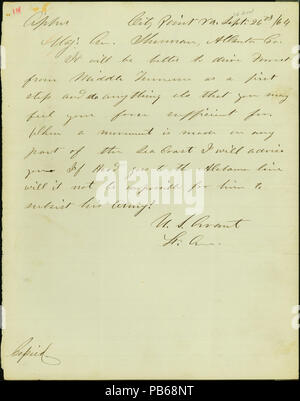 Cypher City Point Va. Sept. 26th /64
Maj. Gen. Sherman, Atlanta Ga.
It will be better to drive Forrest
from Middle Tennessee as a first
step and do anything else that you may
feel your force sufficient for.
When a movement is made on any
part of the Sea Coast I will advise
you. If Hood goes to the Alabama line
will it not be impossible for him to
subsist his army?
U. S. Grant
Lt. Gen.
Copied
alamy
Image ID: PB68NT
www.alamy.com